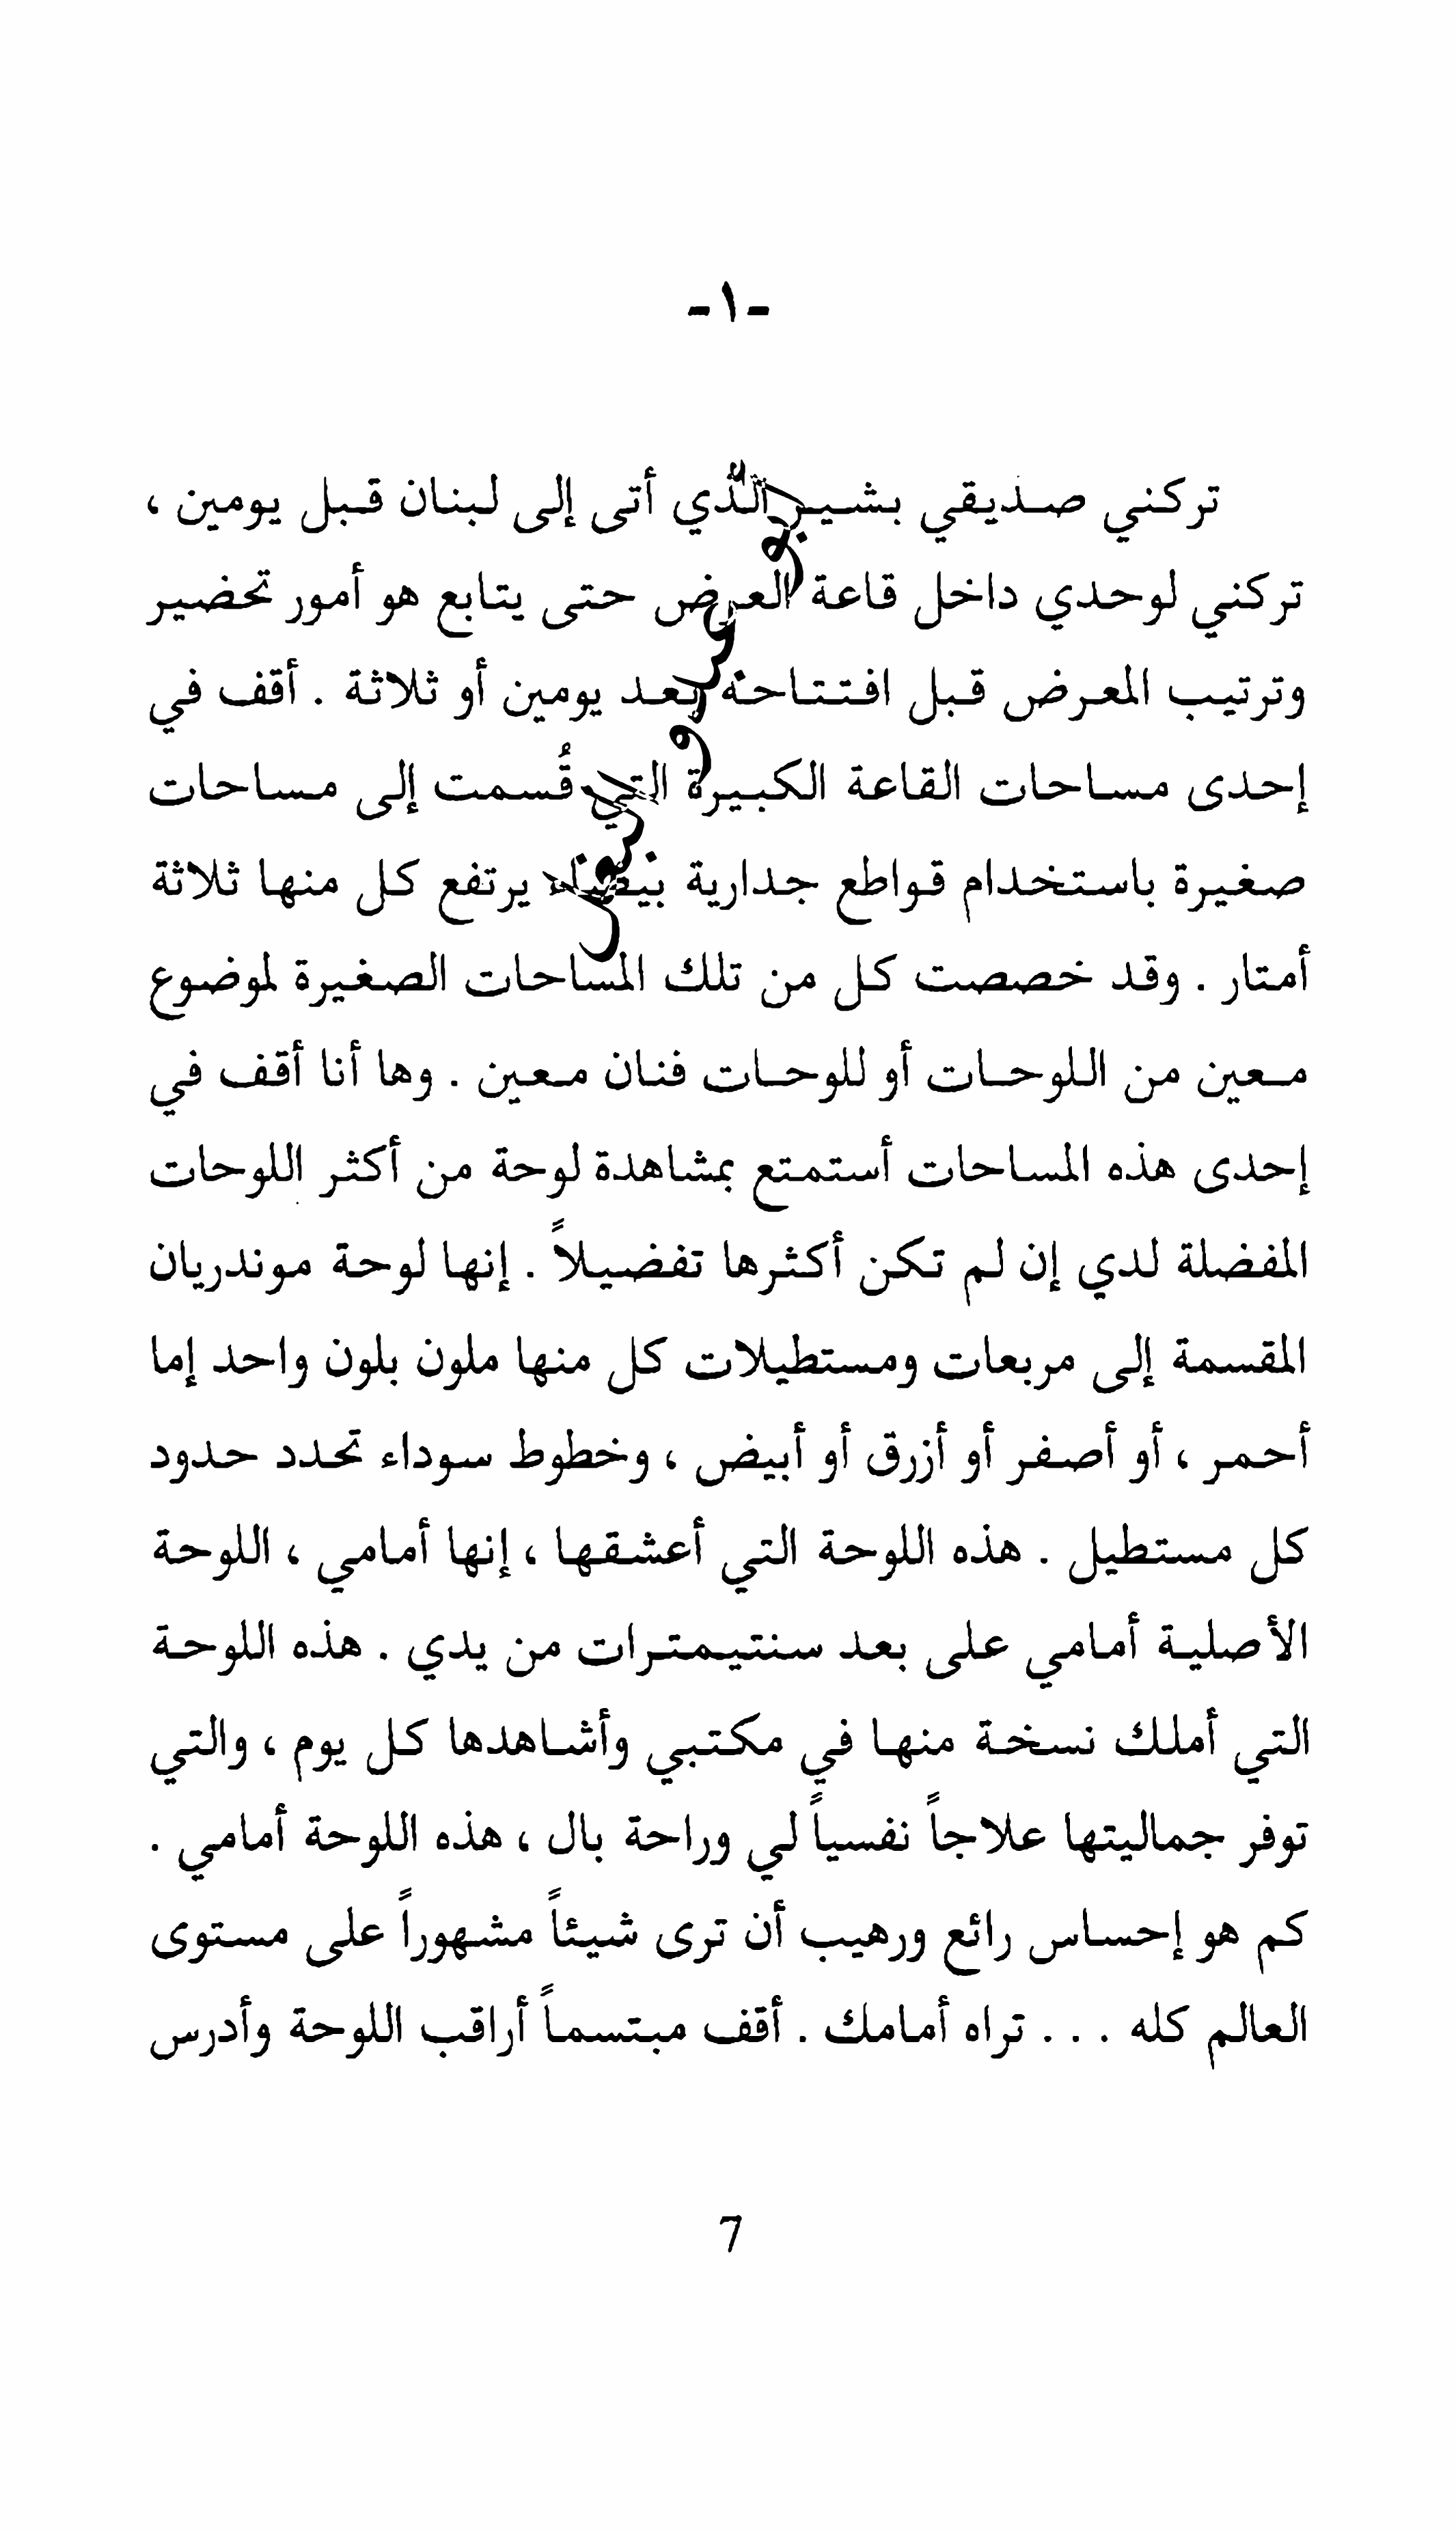 -١-
تركني صديقي بشير الذي أتى إلى لبنان قبل يومين ،
تركني لوحدي داخل قاعة العرض حتى يتابع هو أمور تحضير
وترتيب المعرض قبل افتتاحه بعد يومين أو ثلاثة . أقف في
إحدى مساحات القاعة الكبيرة التي قُسمت إلى مساحات
صغيرة باستخدام قواطع جدارية بيضاء يرتفع كل منها ثلاثة
أمتار . وقد خصصت كل من تلك المساحات الصغيرة لموضوع
معين من اللوحات أو للوحات فنان معين . وها أنا أقف في
إحدى هذه المساحات أستمتع بمشاهدة لوحة من أكثر اللوحات
المفضلة لدي إن لم تكن أكثرها تفضيلاً . إنها لوحة موندريان
المقسمة إلى مربعات ومستطيلات كل منها ملون بلون واحد إما
أحمر ، أو أصفر أو أزرق أو أبيض ، وخطوط سوداء تحدد حدود
كل مستطيل . هذه اللوحة التي أعشقها ، إنها أمامي ، اللوحة
الأصلية أمامي على بعد سنتيمترات من يدي . هذه اللوحة
التي أملك نسخة منها في مكتبي وأشاهدها كل يوم ، والتي
توفر جماليتها علاجاً نفسياً لي وراحة بال ، هذه اللوحة أمامي .
كم هو إحساس رائع ورهيب أن ترى شيئاً مشهوراً على مستوى
العالم كله . . . تراه أمامك . أقف مبتسماً أراقب اللوحة وأدرس
7